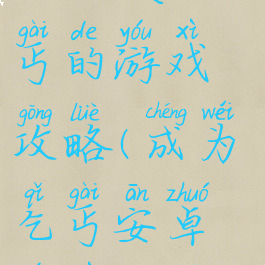 gài de yóu xì
丐的游戏
gōng lüè chéng wéi
攻略(成为
qǐ gài ān zhuó
乞丐安卓